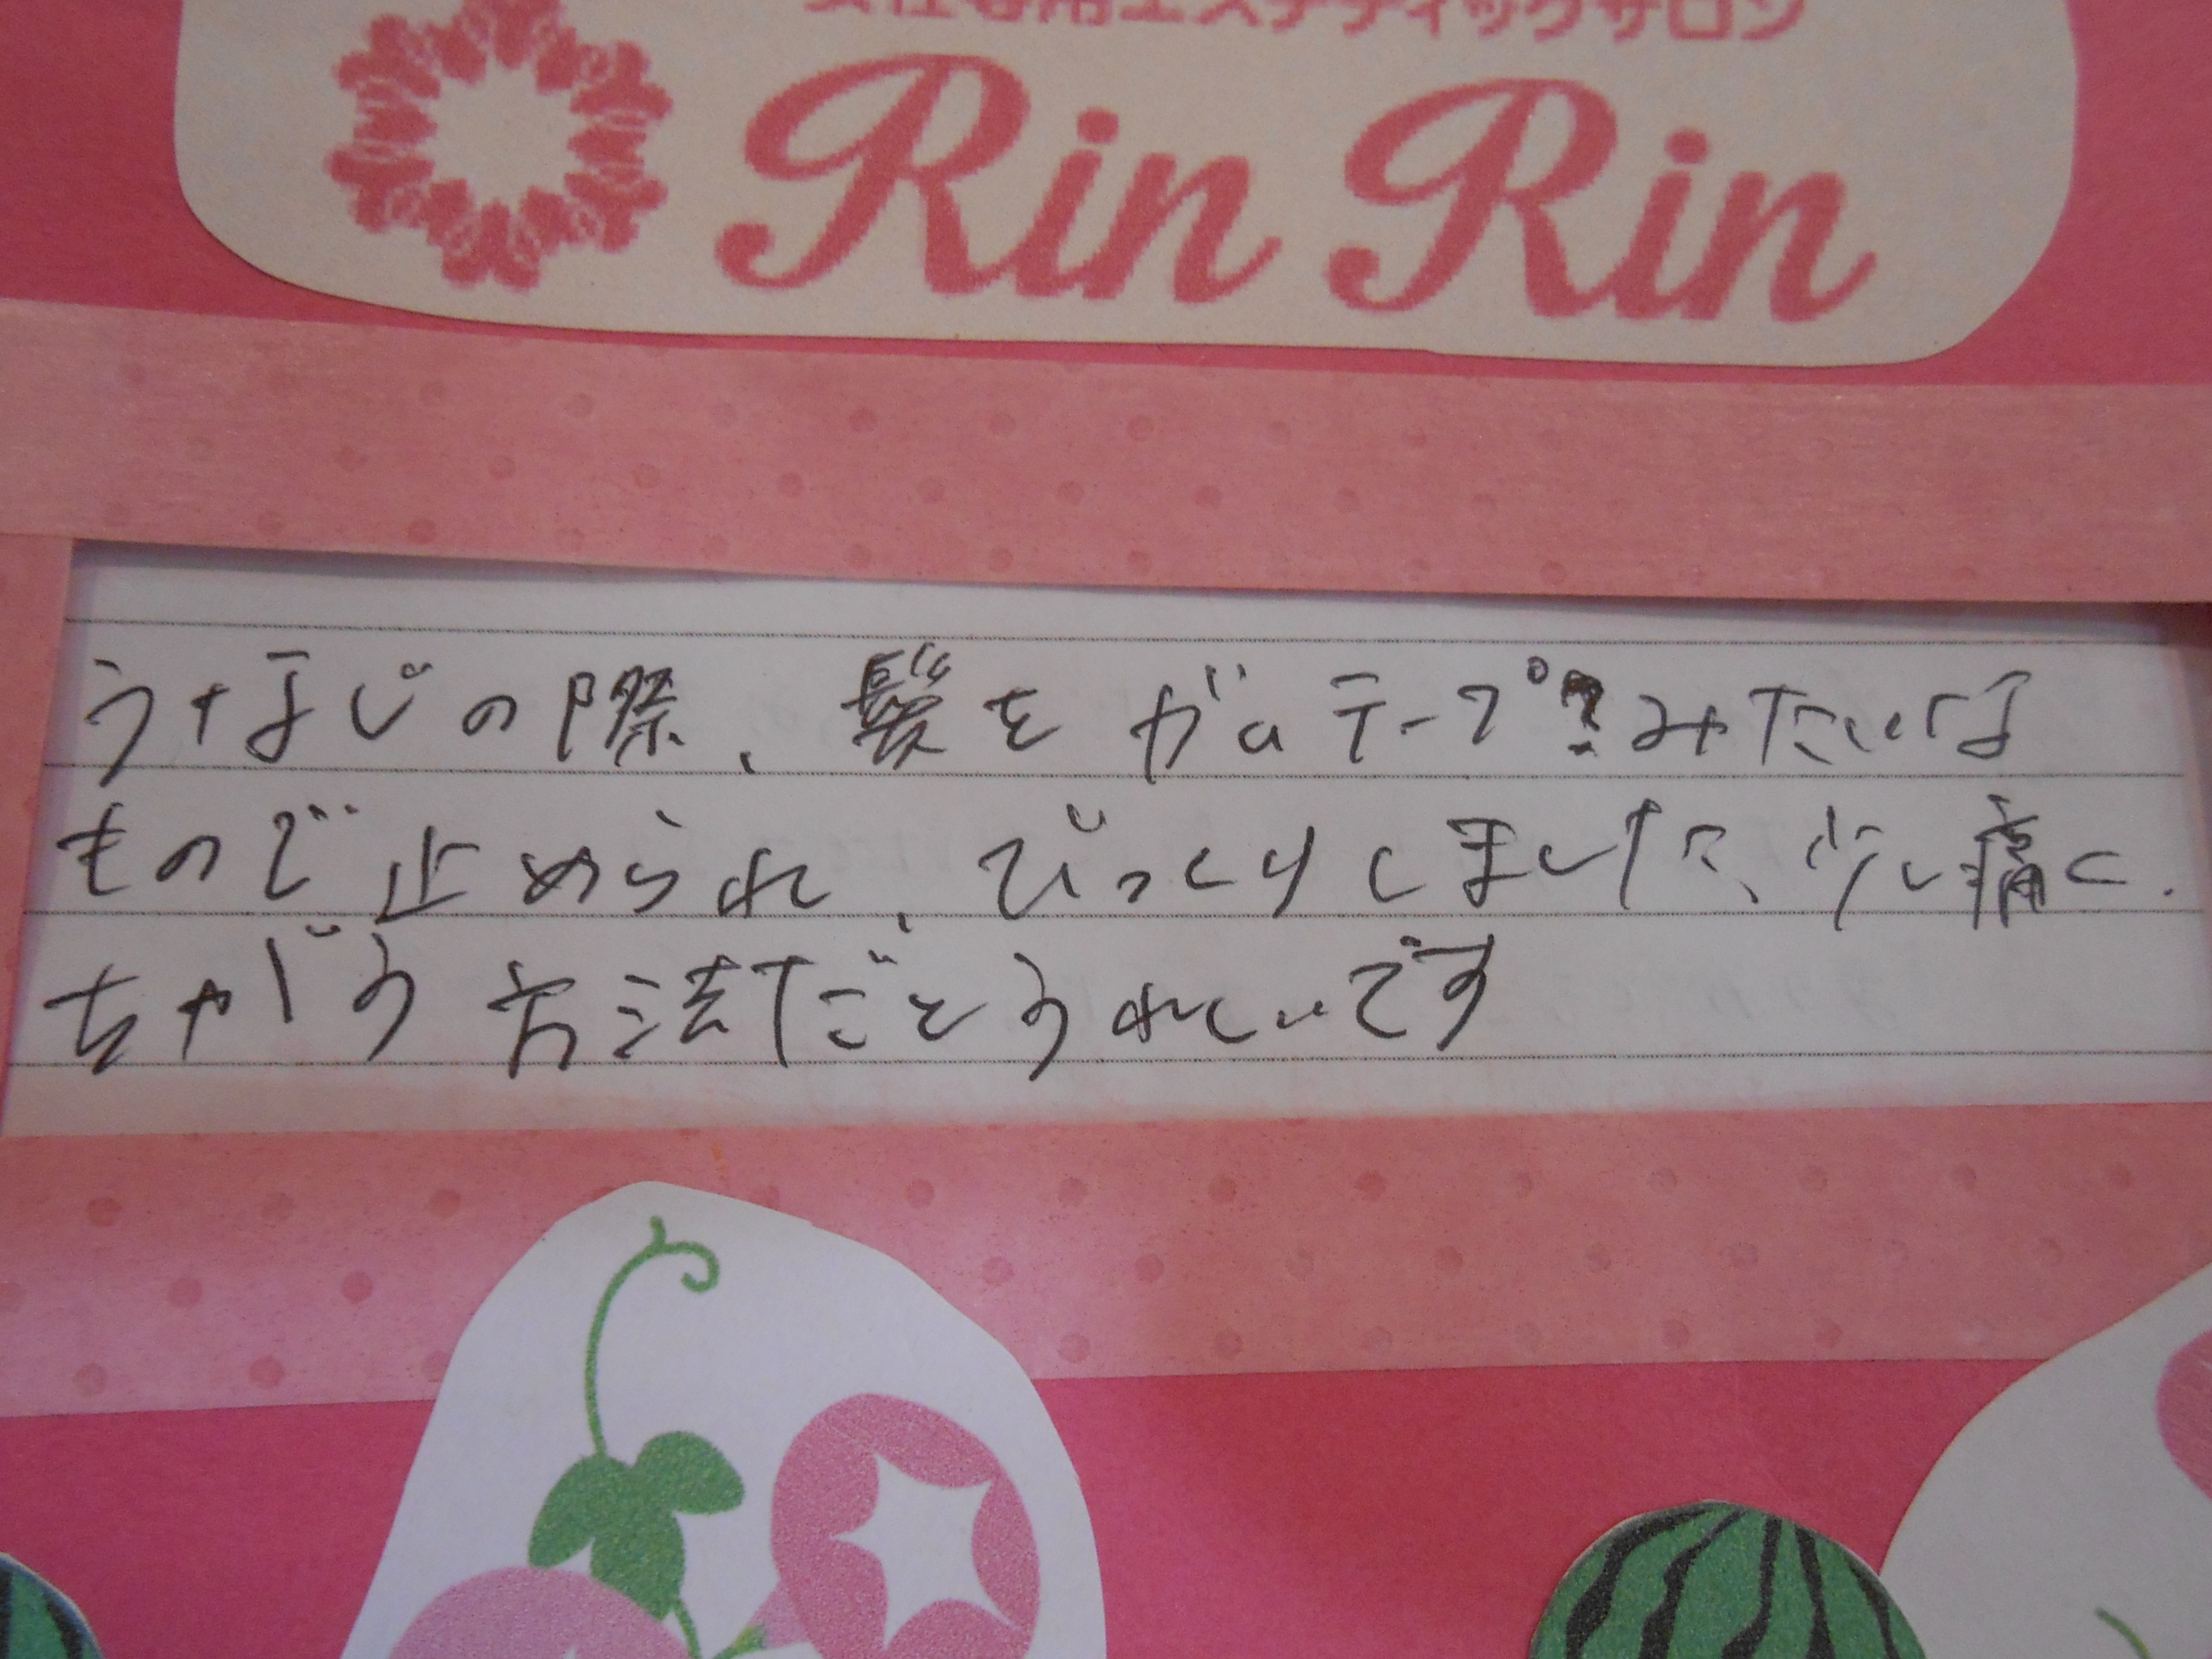 女性専用エステティックサロン
Rin Rin
うなじの際、髪をガムテープ?みたいな
もので止められ、びっくりしました、少し痛く、
ちがう方法だとうれしいです